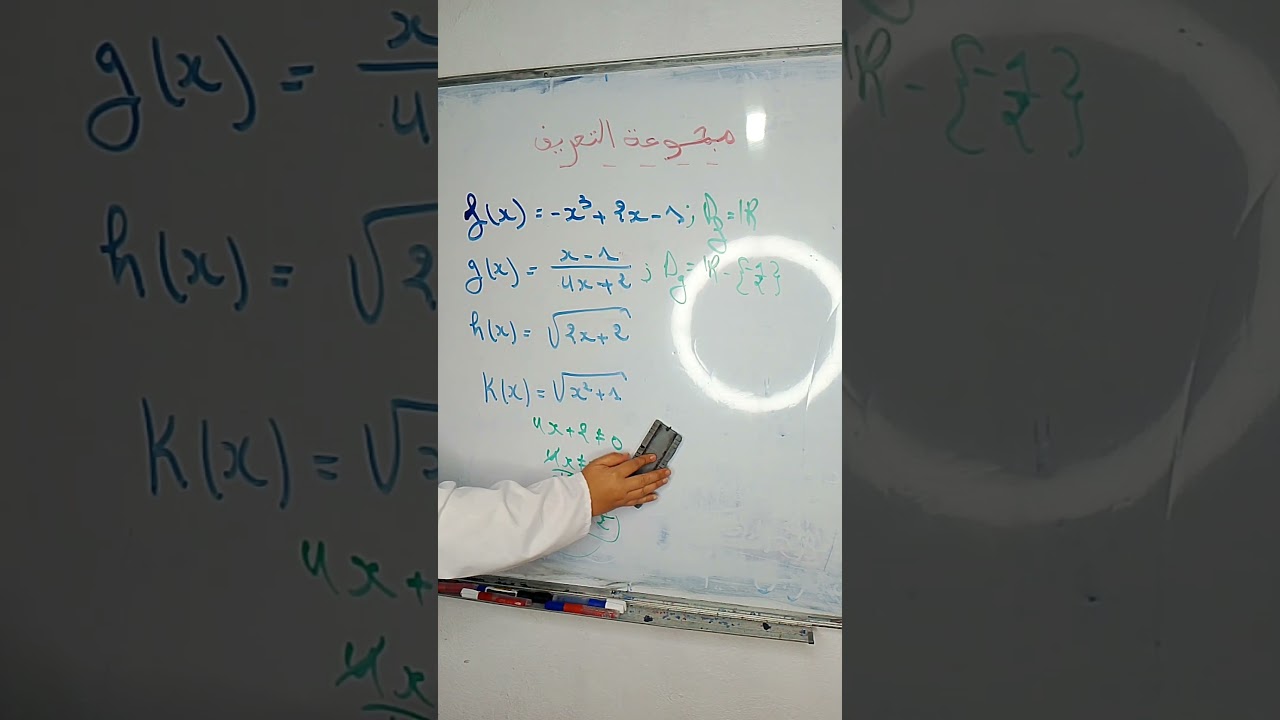 مجموعة التعريف
f(x) = -x³ + 2x - 1 ; Df = IR
g(x) = x-1 / 4x+2 ; Dg = IR - {-1/2}
h(x) = √2x+2
K(x) = √x²+1
4x + 2 ≠ 0
4x ≠